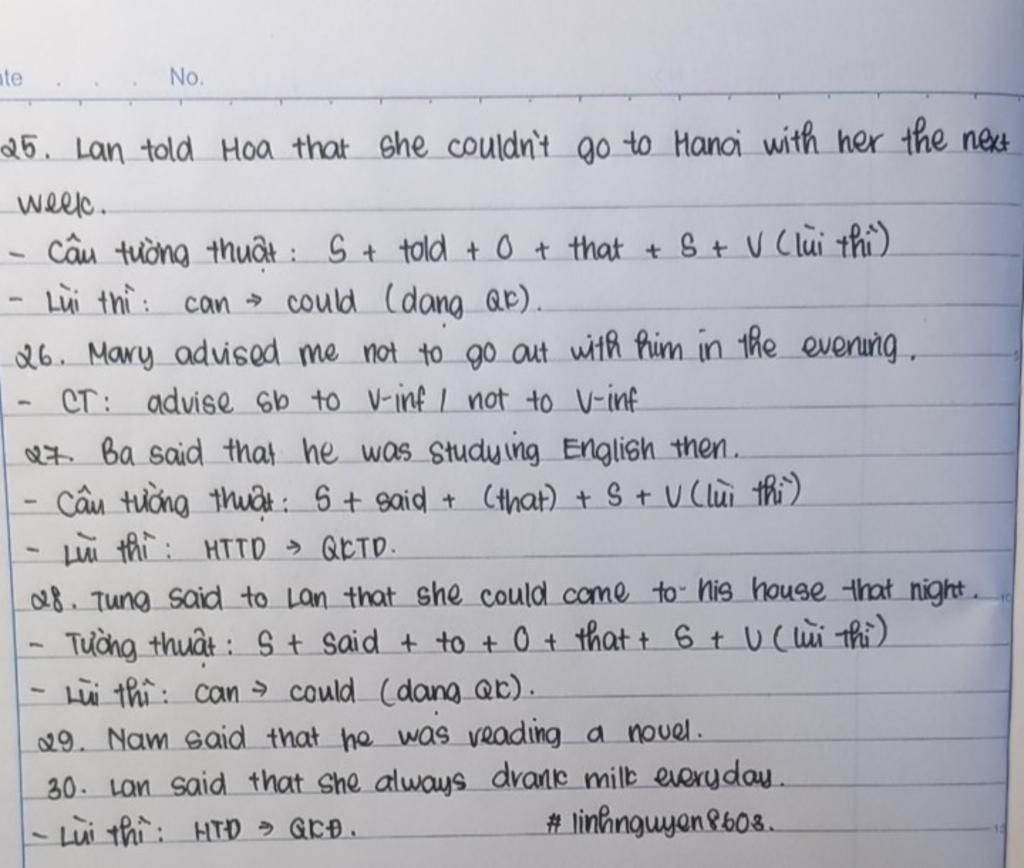 ate . . . No.
25. Lan told Hoa that she couldn't go to Hanoi with her the next
week.
- Câu tường thuật : S + told + O + that + S + V (lùi thì)
- Lùi thì : can → could (dạng QK).
26. Mary advised me not to go out with him in the evening.
- CT : advise sb to V-inf / not to V-inf
27. Ba said that he was studying English then.
- Câu tường thuật : S + said + (that) + S + V (lùi thì)
- Lùi thì : HTTD → QKTD.
28. Tung said to Lan that she could come to his house that night.
- Tường thuật : S + said + to + O + that + S + V (lùi thì)
- Lùi thì : can → could (dạng QK).
29. Nam said that he was reading a novel.
30. Lan said that she always drank milk everyday.
- Lùi thì : HTĐ → QKĐ. # linhnguyen8603.